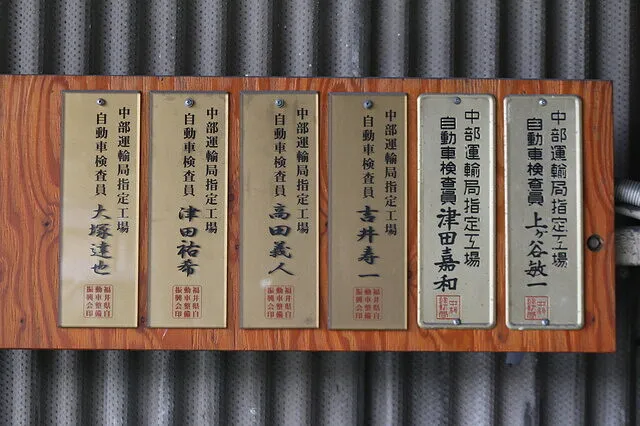 中部運輸局指定工場
自動車検査員 上ヶ谷敏一
中部運輸局指定工場
自動車検査員 津田嘉和
中部運輸局指定工場
自動車検査員 吉井寿一
福井県自
動車整備
振興会印
中部運輸局指定工場
自動車検査員 高田義人
福井県自
動車整備
振興会印
中部運輸局指定工場
自動車検査員 津田祐希
福井県自
動車整備
振興会印
中部運輸局指定工場
自動車検査員 大塚達也
福井県自
動車整備
振興会印